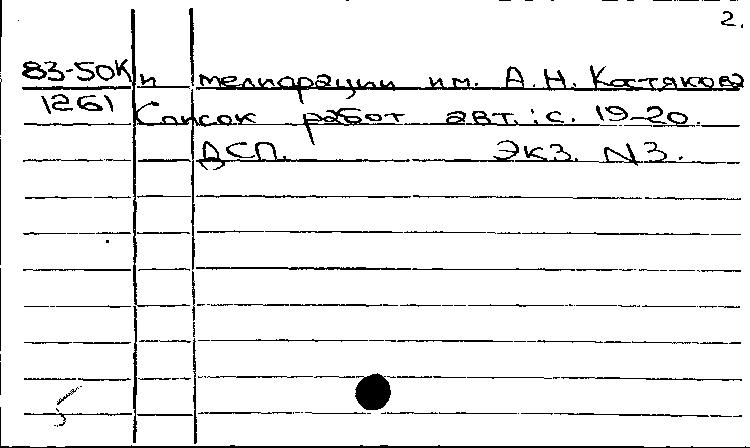 2.
83-50К и мелиорации им. А.Н. Костякова
1261 Список работ авт.: с. 19-20.
ДСП. Экз. N3.
5